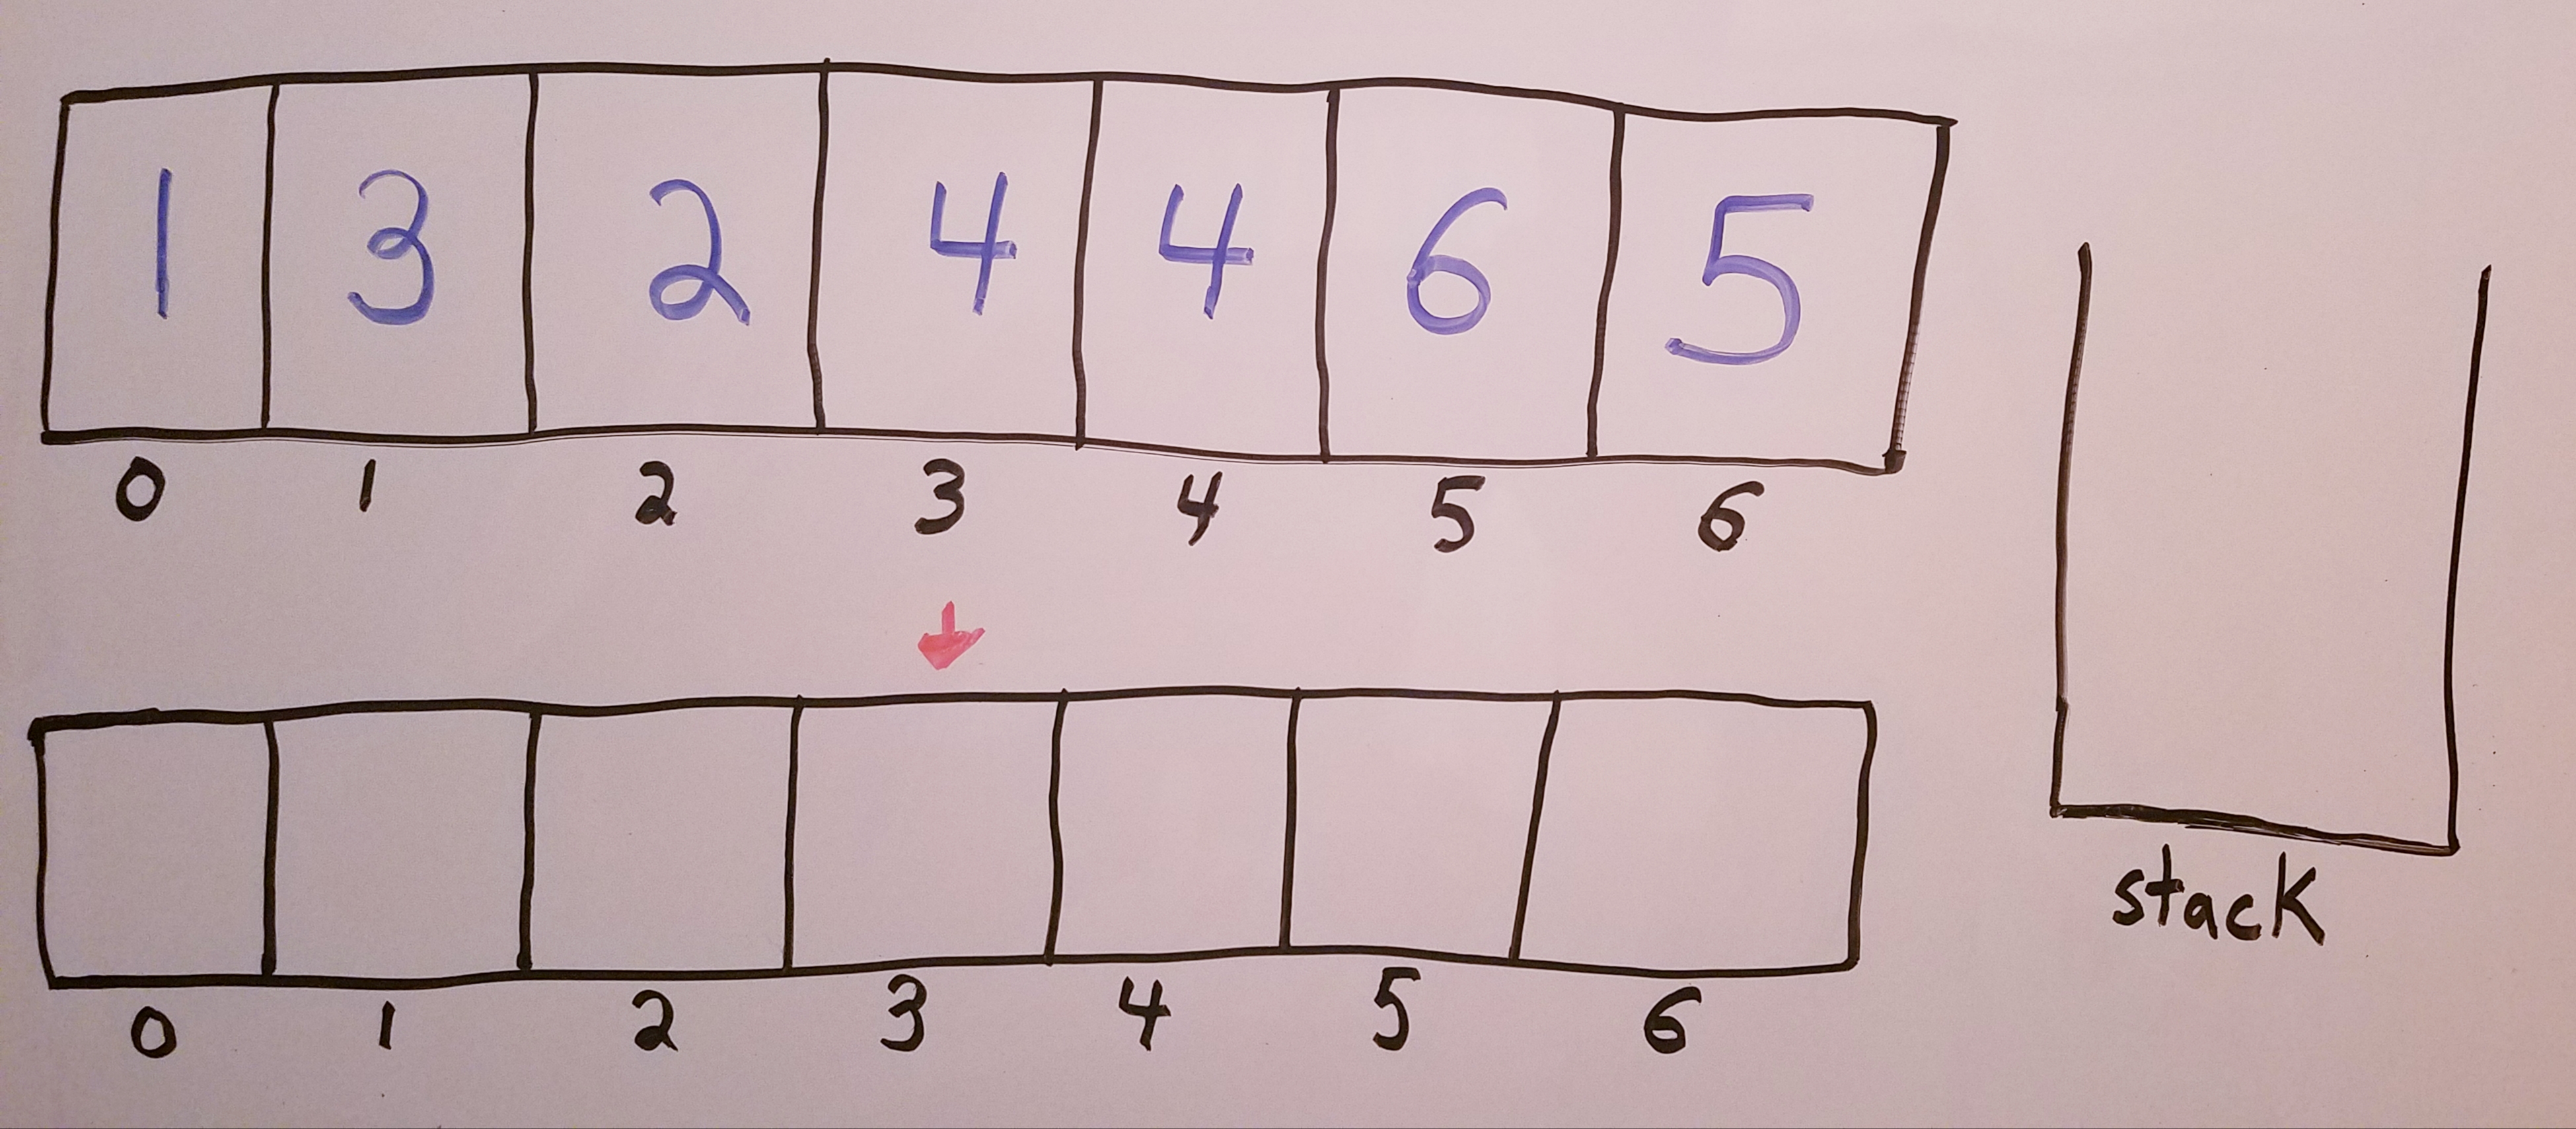 1 3 2 4 4 6 5
0 1 2 3 4 5 6
0 1 2 3 4 5 6
stack